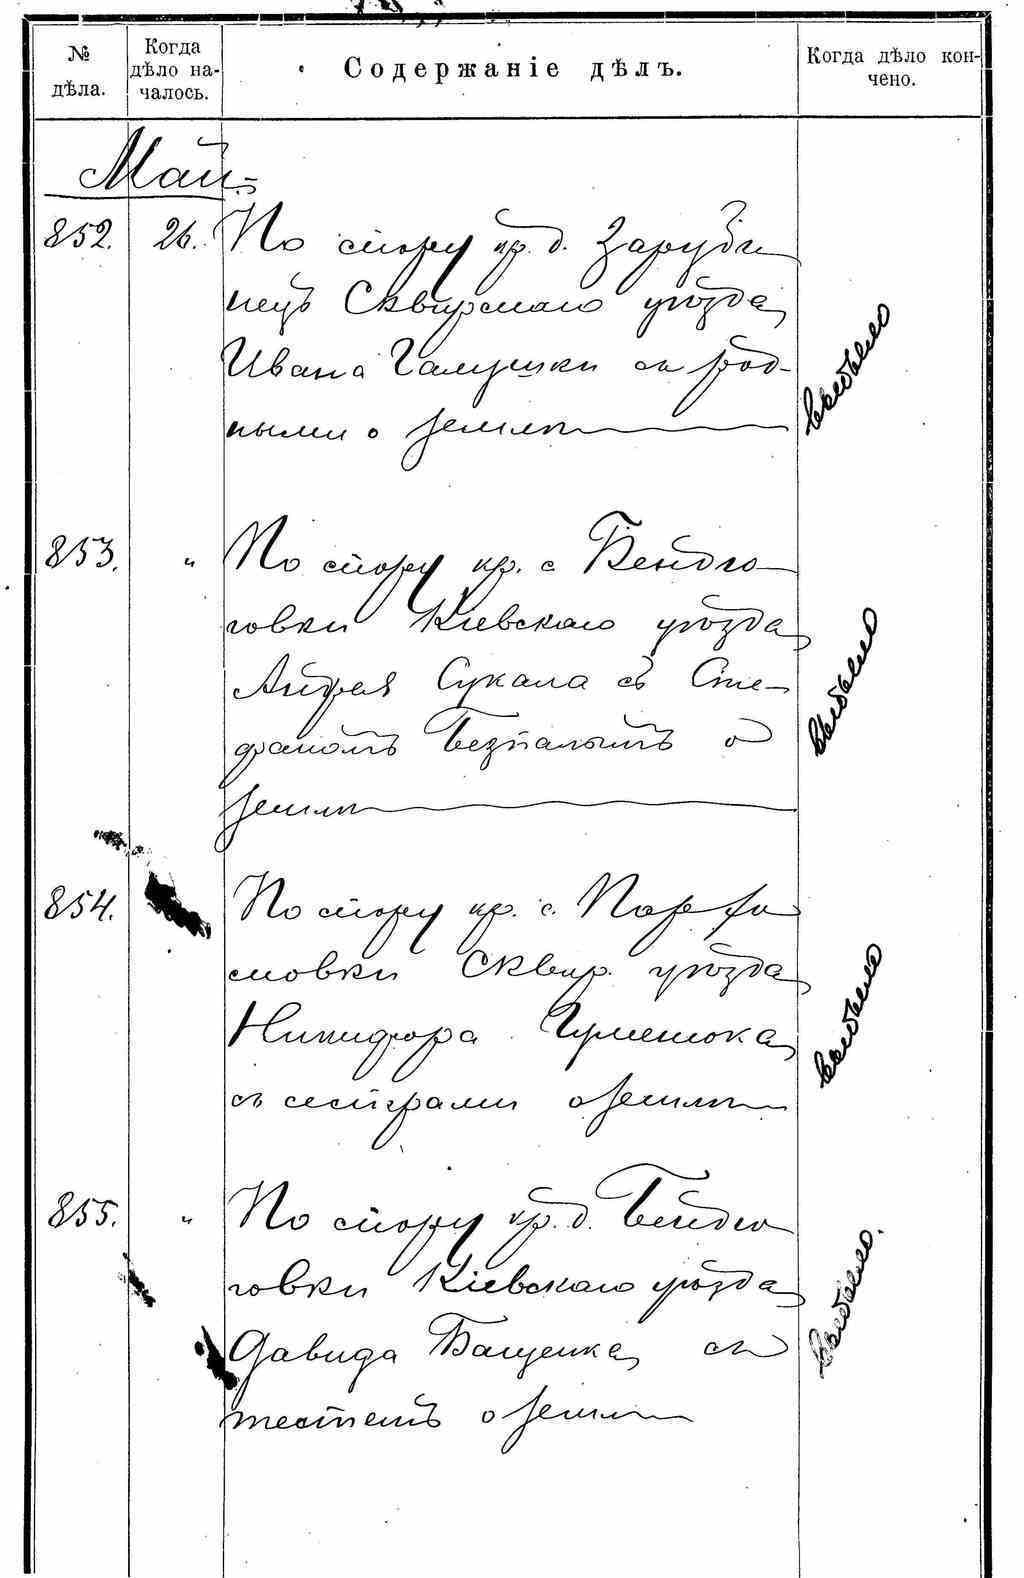 № дѣла.
Когда дѣло на-
чалось.
Содержаніе дѣлъ.
Когда дѣло кон-
чено.
Май
852. 26. По спору кр. д. Заруби
нецъ Сквирскаго уѣзда
Ивана Галушки съ род-
ными о землѣ
выбыло
853. " По спору кр. с
говки Кіевскаго уѣзда
Андрея Сукала съ Сте-
фаномъ Безпалымъ о
землѣ
выбыло
854. По спору кр. с. Парфи
мовки Сквир. уѣзда
Никифора Гуменюка
съ сестрами о землѣ
выбыло
855. " По спору кр. д.
говки Кіевскаго уѣзда
Давида Бащенка съ
тестемъ о землѣ
выбыло.